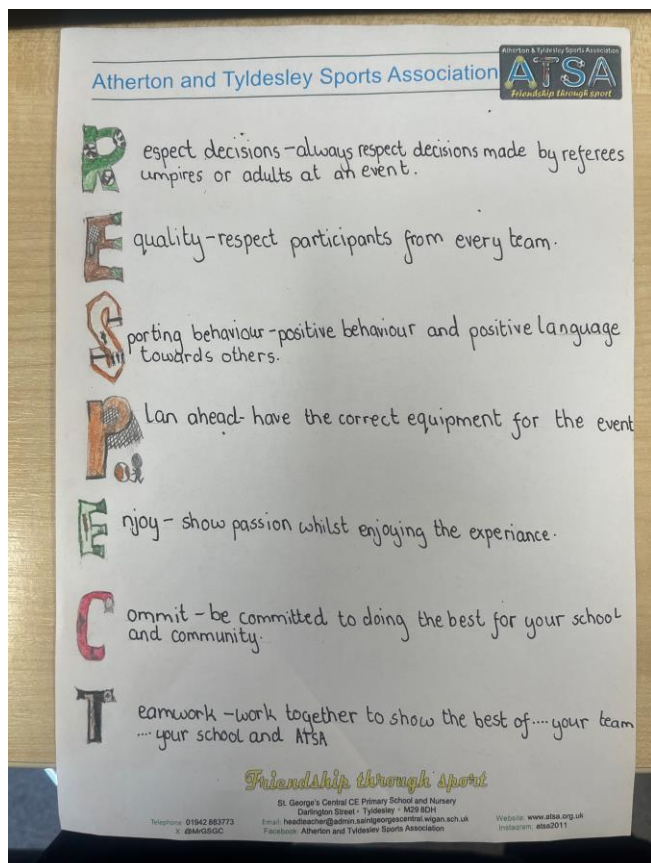 Atherton & Tyldesley Sports Association
Atherton and Tyldesley Sports Association
ATSA
Friendship through sport
Respect decisions - always respect decisions made by referees
umpires or adults at an event.
Equality - respect participants from every team.
Sporting behaviour - positive behaviour and positive language
towards others.
Plan ahead - have the correct equipment for the event
Enjoy - show passion whilst enjoying the experiance.
Commit - be committed to doing the best for your school
and community.
Teamwork - work together to show the best of.... your team
.... your school and ATSA
Friendship through sport
St. George's Central CE Primary School and Nursery
Darlington Street • Tyldesley • M29 8DH
Telephone: 01942 883773 Email: headteacher@admin.saintgeorgescentral.wigan.sch.uk Website: www.atsa.org.uk
X: @MrGSGC Facebook: Atherton and Tyldesley Sports Association Instagram: atsa2011